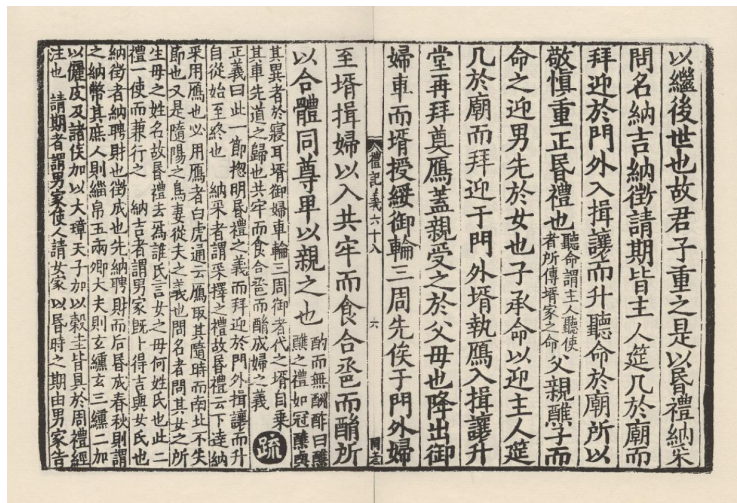 以繼後世也故君子重之是以昏禮納采
問名納吉納徵請期皆主人筵几於廟而
拜迎於門外入揖讓而升聽命於廟所以
敬慎重正昏禮也聽命謂主人聽使者所傳壻家之命父親醮子而
命之迎男先於女也子承命以迎主人筵
几於廟而拜迎于門外壻執鴈入揖讓升
堂再拜奠鴈蓋親受之於父母也降出御
婦車而壻授綏御輪三周先俟于門外婦
禮記義六十八
六
至壻揖婦以入共牢而食合卺而酳所
以合體同尊卑以親之也酌而無酬酢曰醮醮之禮如冠醮與
其異者於寢耳壻御婦車輪三周御者代之壻自乘
其車先道之歸也共牢而食合卺而酳成婦之義
疏
正義曰此一節揔明昏禮之義而拜迎於門外揖讓而升
自從始至終也 納采者謂采擇之禮故昏禮云下達納
采用鴈也必用鴈者白虎通云鴈取其隨時而南北不失
節也又是隨陽之鳥妻從夫之義也問名者問其女之所
生母之姓名故昏禮云爲誰氏言女之母何姓氏也此二
禮一使而兼行之 納吉者謂男家既卜得吉與女氏也
納徵者納聘財也徵成也先納聘財而后昏成春秋則謂
之納幣其庶人則緇帛五兩卿大夫則玄纁玄三纁二加
以儷皮及諸侯加以大璋天子加以穀圭皆具於周禮經
注也 請期者謂男家使人請女家以昏時之期由男家告